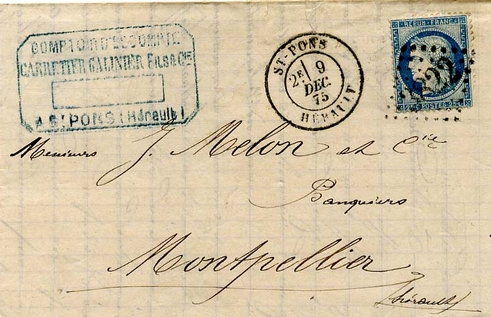 COMPTOIR D'ESCOMPTE
CARRETIER GALINIER FILS & CIE
A ST PONS (Hérault)
ST-PONS
2E
9
DEC.
75
HERAULT
REPUB. FRANC.
POSTES
Messieurs J. Melon et Cie
Banquiers
Montpellier
Hérault